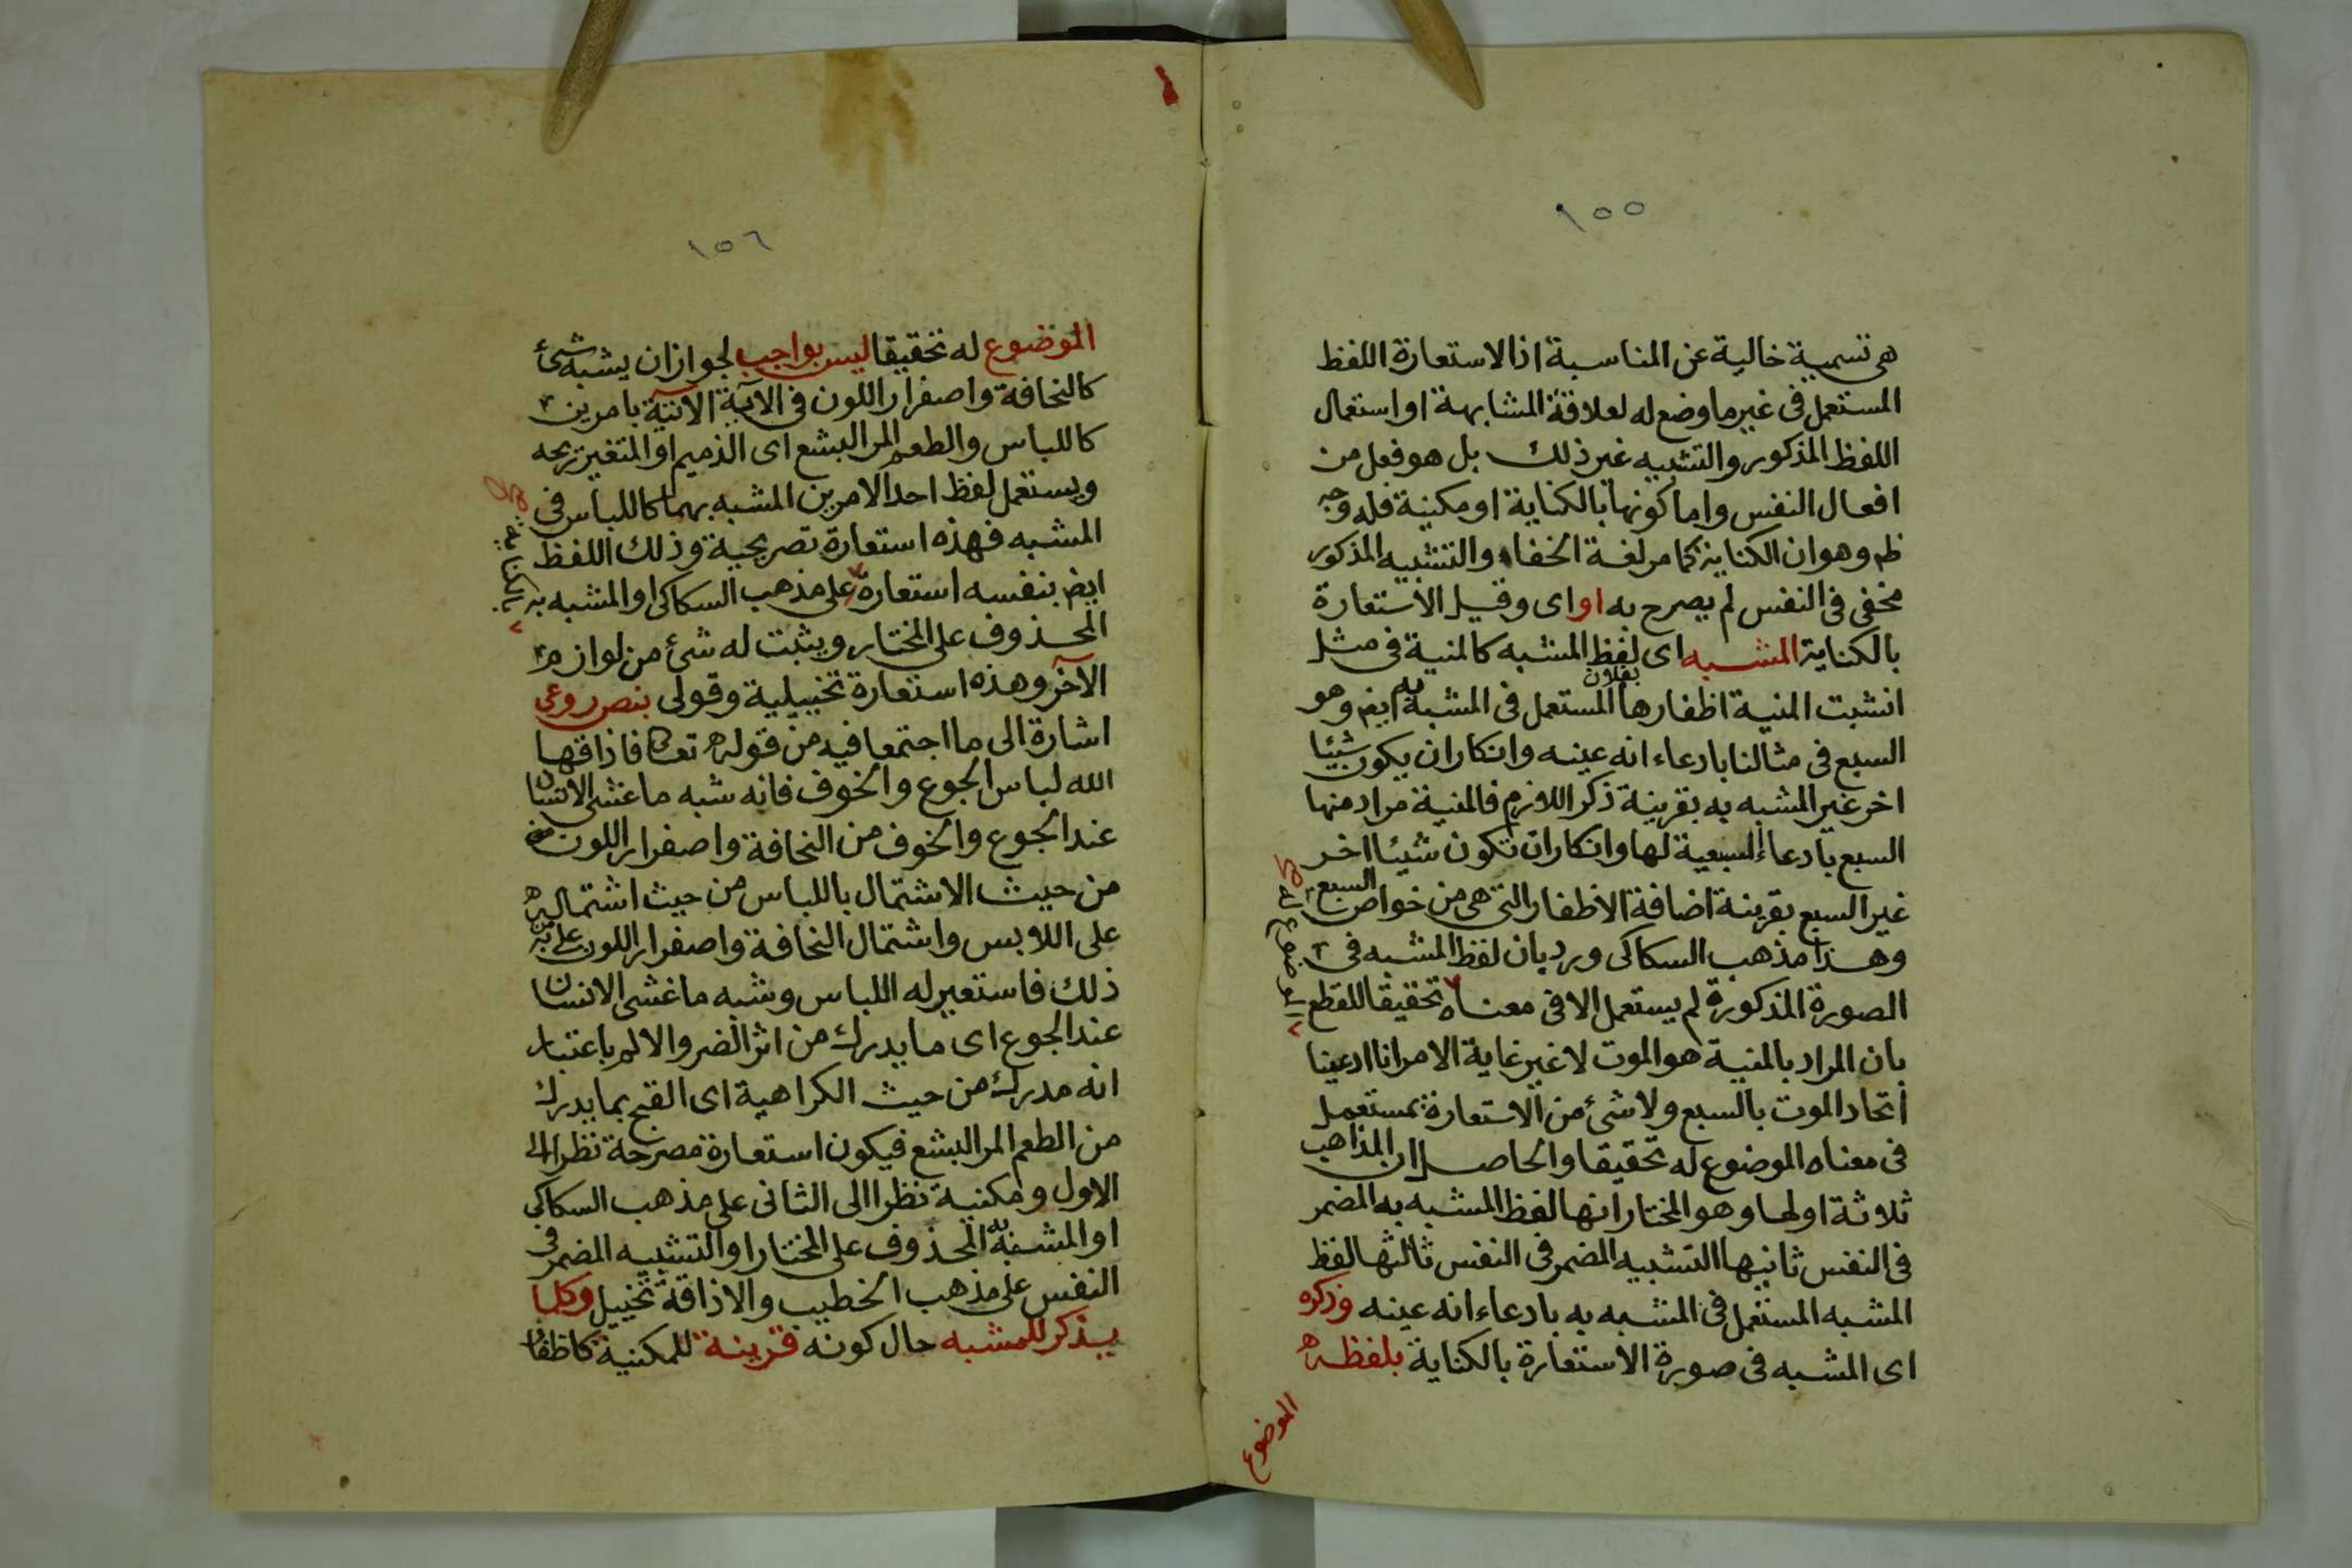 ١٥٥
هى تسمية خالية عن المناسبة اذ الاستعارة اللفظ
المستعمل فى غير ما وضع له لعلاقة المشابهة او استعمال
اللفظ المذكور والتشبيه غير ذلك بل هو فعل من
افعال النفس واما كونها بالكناية او مكنية فله وجه
ظ وهو ان الكناية كما مر لغة الخفاء والتشبيه المذكور
مخفى فى النفس لم يصرح به او اى وقيل الاستعارة
بالكناية المشبه اى لفظ المشبه كالمنية فى مثل
انشبت المنية اظفارها بفلان المستعمل فى المشبه به ايض وهو
السبع فى مثالنا بادعاء انه عينه وانكار ان يكون شيئا
اخر غير المشبه به بقرينة ذكر اللازم فالمنية مراد منها
السبع بادعاء السبعية لها وانكار ان تكون شيئا اخر
غير السبع بقرينة اضافة الاظفار التى هى من خواص السبع
وهذا مذهب السكاكى ورد بان لفظ المشبه فى
الصورة المذكورة لم يستعمل الا فى معناه تحقيقا للقطع
الموضوع له صح
بان المراد بالمنية هو الموت لا غير غاية الامر انا ادعينا
اتحاد الموت بالسبع ولا شئ من الاستعارة بمستعمل
فى معناه الموضوع له تحقيقا والحاصل ان المذاهب
ثلاثة اولها وهو المختار انها لفظ المشبه به المضمر
فى النفس ثانيها التشبيه المضمر فى النفس ثالثها لفظ
المشبه المستعمل فى المشبه به بادعاء انه عينه وذكره
اى المشبه فى صورة الاستعارة بالكناية بلفظه
الموضوع
١٥٦
الموضوع له تحقيقا ليس بواجب لجواز ان يشبه شئ
كالنحافة واصفرار اللون فى الآية الاتية بامرين
كاللباس والطعم المر البشع اى الذميم او المتغير ريحه
ويستعمل لفظ احد الامرين المشبه بهما كاللباس فى
المشبه فهذه استعارة تصريحية وذلك اللفظ
ايض بنفسه استعارة على مذهب السكاكى او المشبه به
بالكناية صح
المحذوف على المختار ويثبت له شئ من لوازم
الآخر وهذه استعارة تخييلية وقولى بنص روعى
اشارة الى ما اجتمعا فيه من قوله تعالى فاذاقها
الله لباس الجوع والخوف فانه شبه ما غشى الانسان
عند الجوع والخوف من النحافة واصفرار اللون
من حيث الاشتمال باللباس من حيث اشتماله
على اللابس واشتمال النحافة واصفرار اللون على من به
ذلك فاستعير له اللباس وشبه ما غشى الانسان
عند الجوع اى ما يدرك من اثر الضر والالم باعتبار
انه مدرك من حيث الكراهية اى القبح بما يدرك
من الطعم المر البشع فيكون استعارة مصرحة نظرا الى
الاول ومكنية نظرا الى الثانى على مذهب السكاكى
او المشبه به المحذوف على المختار او التشبيه المضمر فى
النفس على مذهب الخطيب والاذاقة تخييل وكلما
يذكر للمشبه حال كونه قرينة للمكنية كاظفار